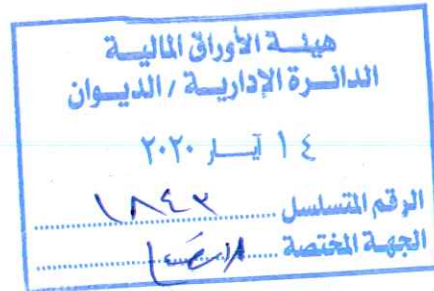 هيئة الأوراق المالية
الدائرة الإدارية / الديوان
١٤ أيار ٢٠٢٠
الرقم المتسلسل ١٨٤٣
الجهة المختصة